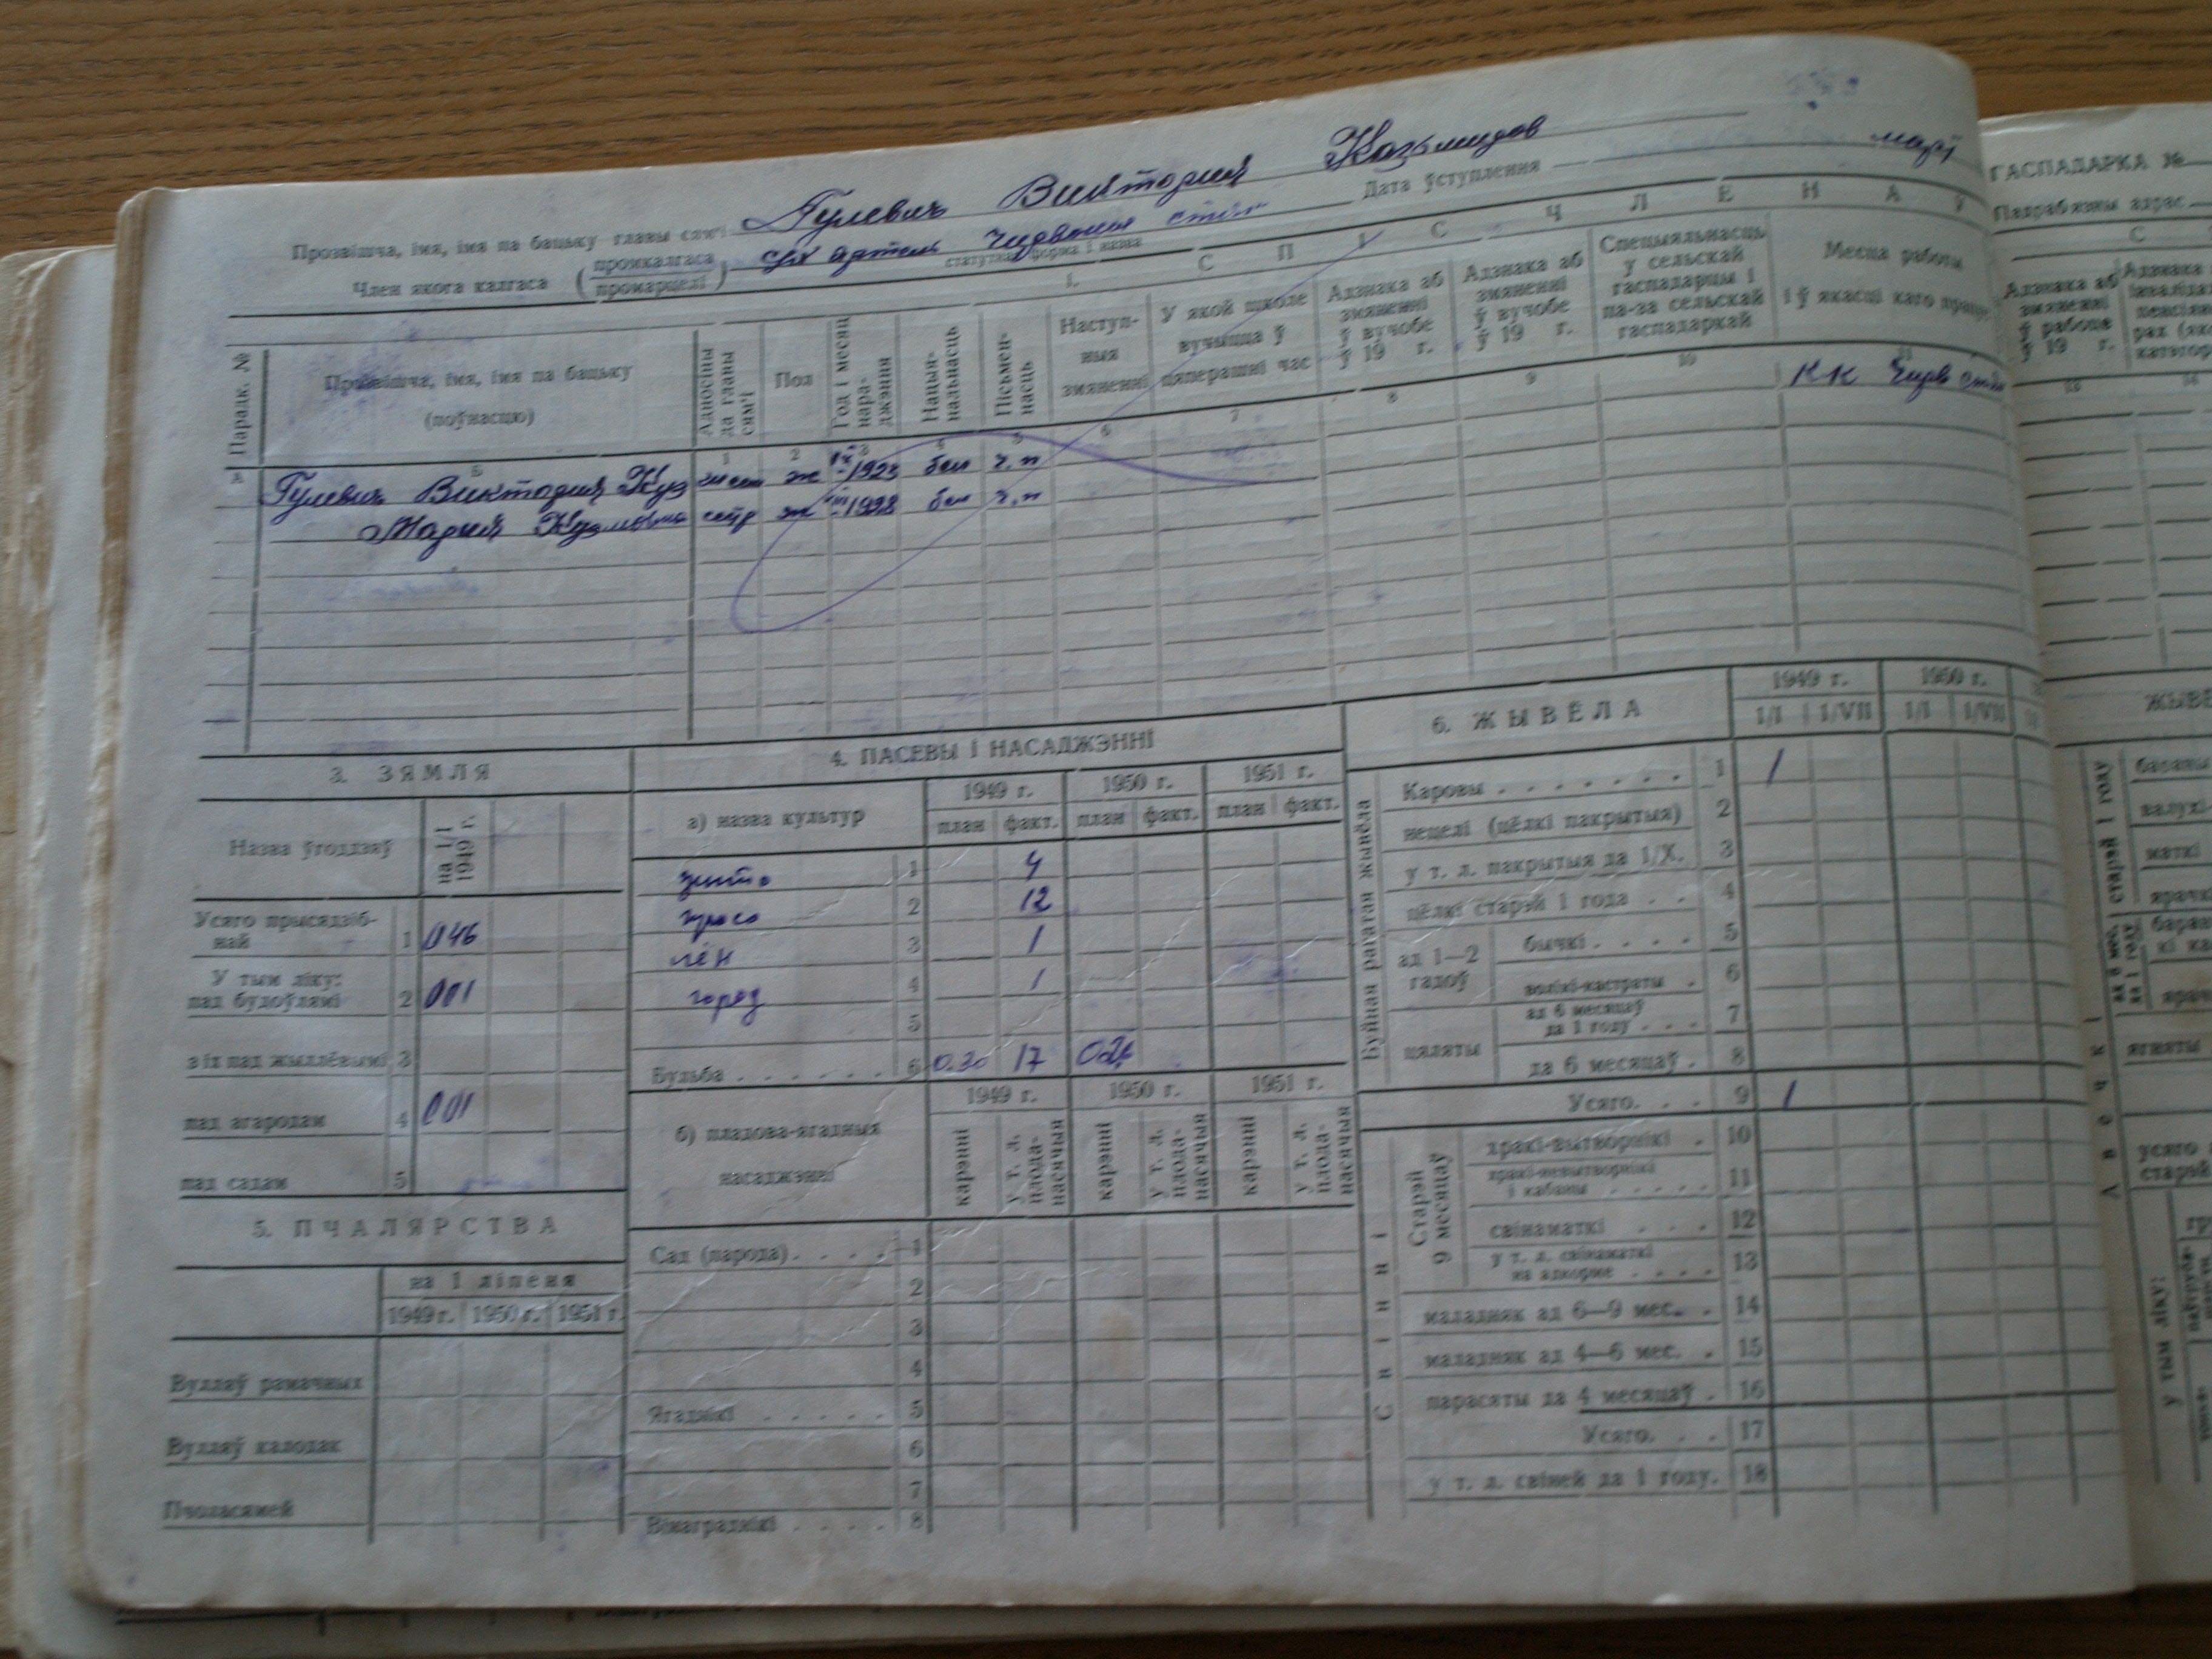 Прозвішча, імя, імя па бацьку главы сям'і Гулевич Виктория Козьмидов
Член якога калгаса (промкалгаса промарцелі) с/х артель Чырвоный статутная форма і назва Дата ўступлення
1. С П І С Ч Л Е Н А Ў
Парадк. №
Прозвішча, імя, імя па бацьку (поўнасцю)
Адносіны да главы сям'і
Пол
Год і месяц нараджэння
Нацыянальнасць
Пісьменнасць
Наступныя змяненні
У якой школе вучыцца ў цяперашні час
Адзнака аб змяненні ў вучобе ў 19 г.
Адзнака аб змяненні ў вучобе ў 19 г.
Спецыяльнасць у сельскай гаспадарцы і па-за сельскай гаспадаркай
Месца работы і ў якасці каго працуе
А Б 1 2 3 4 5 6 7 8 9 10 11
Гулевич Виктория Куз ж IX 1923 бел ч.п КК Черв
Мария Кузмовна сестр ж 1928 бел ч.п
3. ЗЯМЛЯ
Назва ўгоддзяў на 1/I 1949 г.
Усяго прысядзібнай 1 046
У тым ліку: пад будоўлямі 2 001
з іх пад жыллёвымі 3
пад агародам 4 001
пад садам 5
5. ПЧАЛЯРСТВА
на 1 ліпеня
1949 г. 1950 г. 1951 г.
Вулляў рамачных
Вулляў калодак
Пчоласямей
4. ПАСЕВЫ І НАСАДЖЭННІ
а) назва культур 1949 г. 1950 г. 1951 г.
план факт. план факт. план факт.
жыто 1 4
просо 2 12
лён 3 1
город 4 1
5
Бульба 6 0.30 17
б) пладова-ягадныя насаджэнні
1949 г. 1950 г. 1951 г.
карэнні у т. л. пладанасячыя карэнні у т. л. пладанасячыя карэнні у т. л. пладанасячыя
Сад (парода) 1
2
3
4
Ягаднікі 5
6
7
Вінаграднікі 8
6. ЖЫВЁЛА
1949 г. 1950 г.
1/I 1/VII 1/I 1/VII
Буйная рагатая жывёла
Каровы 1 1
нецелі (цёлкі пакрытыя) 2
у т. л. пакрытыя да 1/X. 3
цёлкі старэй 1 года 4
ад 1—2 гадоў
бычкі 5
волікі-кастраты 6
цяляты
ад 6 месяцаў да 1 году 7
да 6 месяцаў 8
Усяго 9 1
Свінні
Старэй 9 месяцаў
хракі-вытворнікі 10
хракі-невытворнікі і кабаны 11
свінаматкі 12
у т. л. свінаматкі на адкорме 13
маладняк ад 6—9 мес. 14
маладняк ад 4—6 мес. 15
парасяты да 4 месяцаў 16
Усяго 17
у т. л. свіней да 1 году 18
ГАСПАДАРКА №
Падрабязны адрас
С
Адзнака аб змяненні ў рабоце ў 19 г.
13 14
ЖЫВЁ